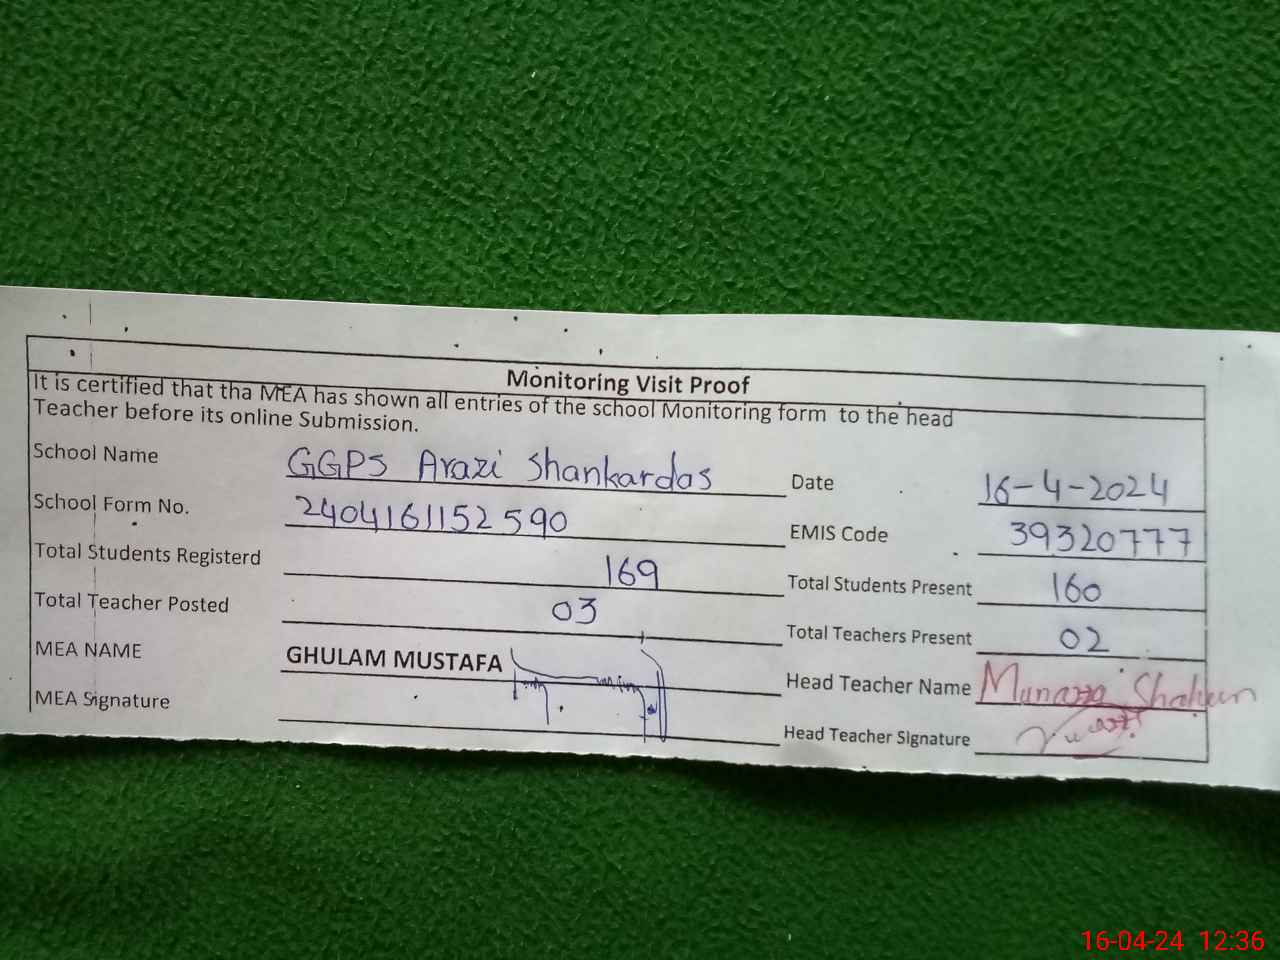 Monitoring Visit Proof
It is certified that tha MEA has shown all entries of the school Monitoring form to the head
Teacher before its online Submission.
School Name GGPS Arazi Shankardas Date 16-4-2024
School Form No. 2404161152590 EMIS Code 39320777
Total Students Registerd 169 Total Students Present 160
Total Teacher Posted 03 Total Teachers Present 02
MEA NAME GHULAM MUSTAFA Head Teacher Name Munazza Shaheen
MEA Signature Head Teacher Signature
16-04-24 12:36